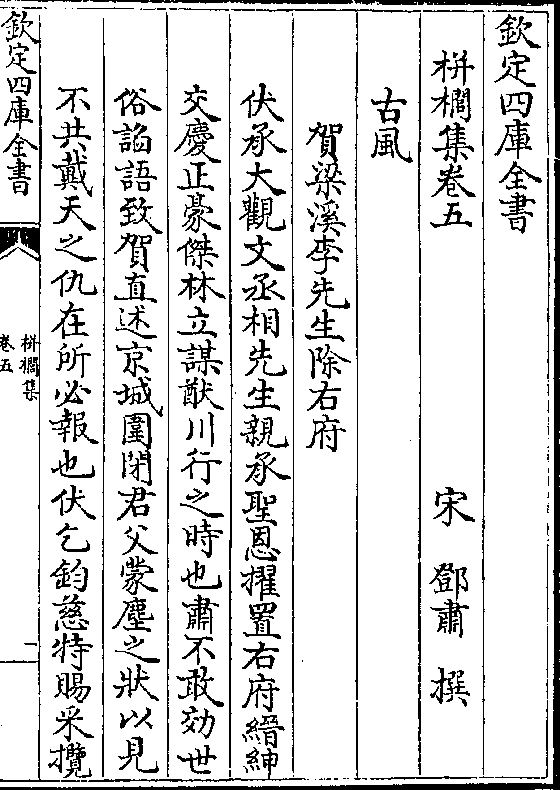 欽定四庫全書
栟櫚集卷五
宋 鄧肅 撰
古風
賀梁溪李先生除右府
伏承大觀文丞相先生親承聖恩擢置右府縉紳
交慶正豪傑林立謀猷川行之時也肅不敢効世
俗諂語致賀直述京城圍閉君父蒙塵之狀以見
不共戴天之仇在所必報也伏乞鈞慈特賜采攬
欽定四庫全書
栟櫚集
卷五
一